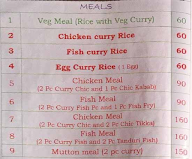 MEALS
1 Veg Meal (Rice with Veg Curry) 60
2 Chicken curry Rice 60
3 Fish curry Rice 60
4 Egg Curry Rice (1 Egg) 60
5 Chicken Meal
(2 Pc Curry Chic and 1 Pc Chic Kabab)
6 Fish Meal 90
(2 Pc Curry Fish Pc and 1 Pc Fish Fry)
7 Chicken Meal 160
(2 Pc Curry Chic and 2 Pc Chic Tikka)
8 Fish Meal 160
(2 Pc Curry Fish and 2 Pc Tanduri Fish)
9 Mutton meal (2 pc curry) 150